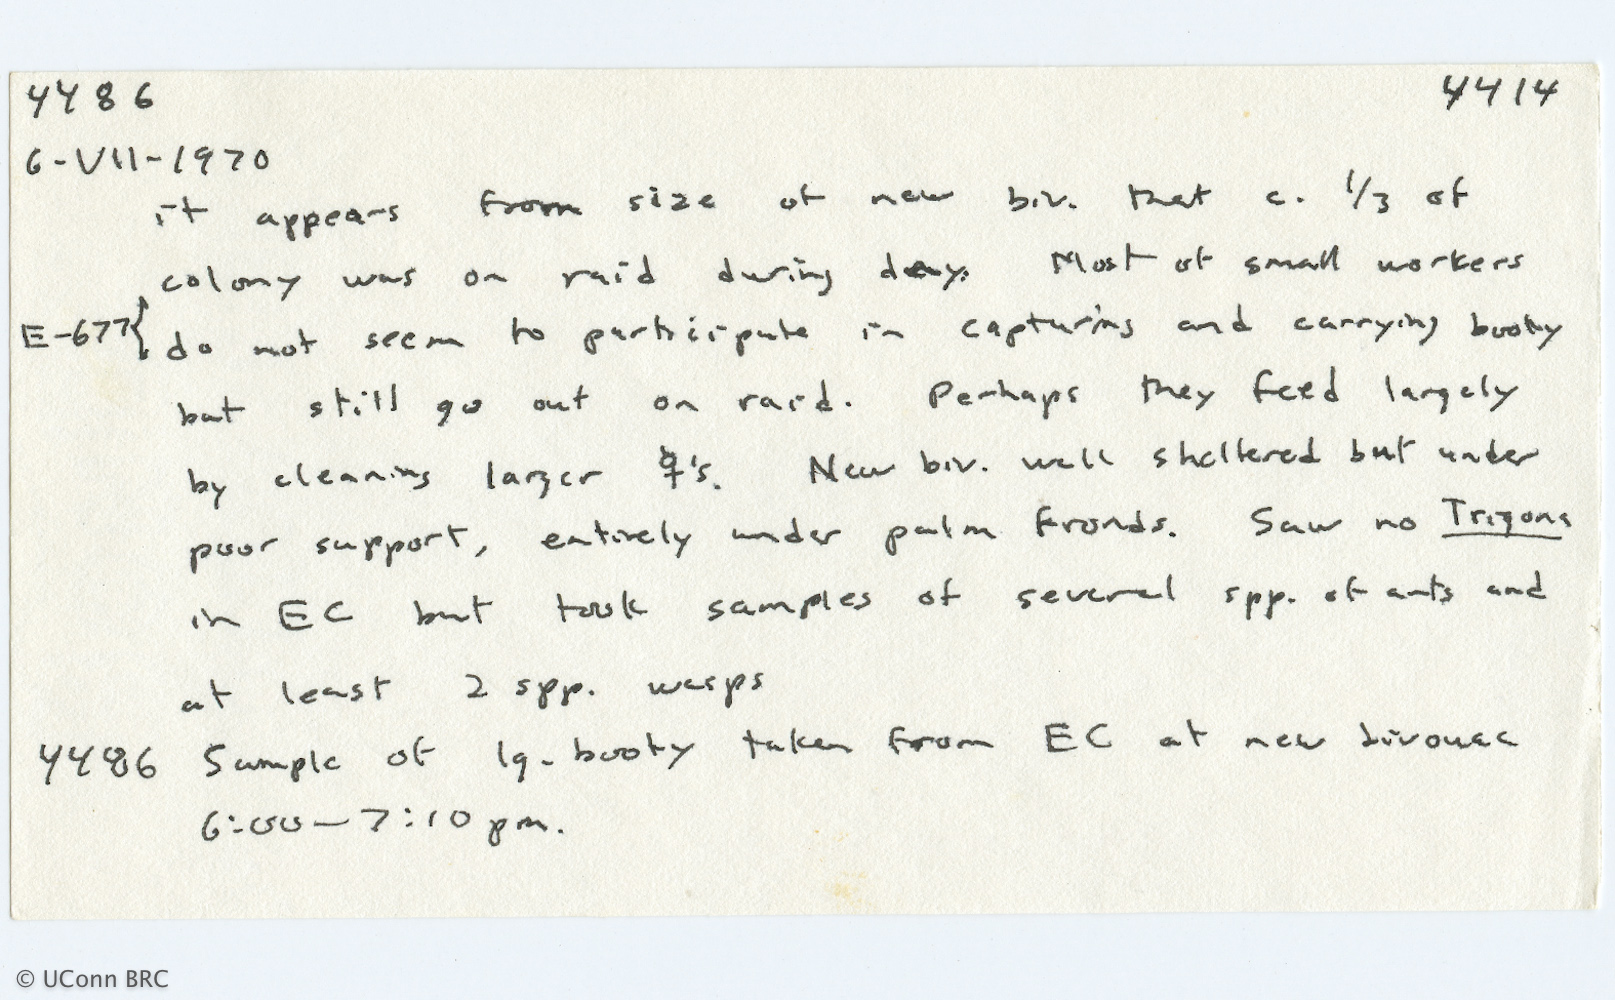 4486 4414
6-VII-1970
it appears from size of new biv. that c. 1/3 of
colony was on raid during day. Most of small workers
E-677{ do not seem to participate in capturing and carrying booty
but still go out on raid. Perhaps they feed largely
by cleaning larger ☿'s. New biv. well sheltered but under
poor support, entirely under palm fronds. Saw no Trigona
in EC but took samples of several spp. of ants and
at least 2 spp. wasps
4486 Sample of lg. booty taken from EC at new bivouac
6:00-7:10 pm.
© UConn BRC